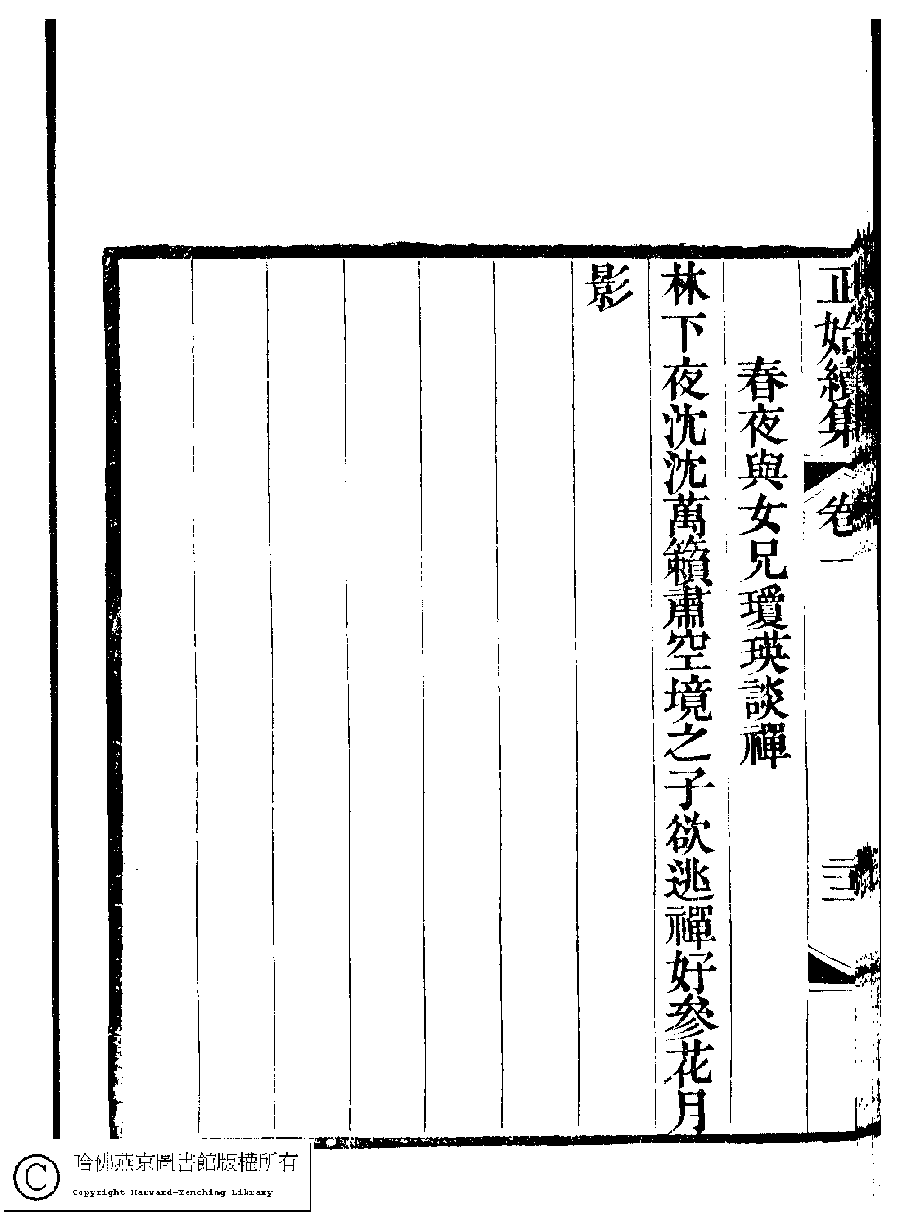 正始續集 卷一 三
春夜與女兄瓊瑛談禪
林下夜沈沈萬籟肅空境之子欲逃禪好參花月
影
哈佛燕京圖書館版權所有
Copyright Harvard-Yenching Library